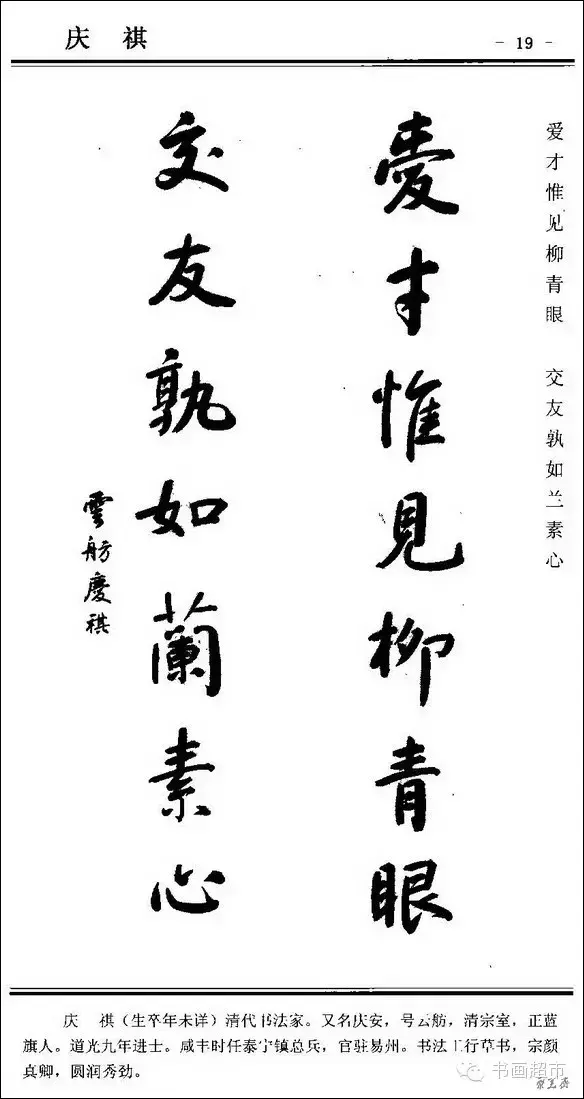 庆 祺
- 19 -
爱才惟见柳青眼 交友孰如兰素心
愛才惟見柳青眼
交友孰如蘭素心
雲舫慶祺
庆 祺（生卒年未详）清代书法家。又名庆安，号云舫，清宗室，正蓝
旗人。道光九年进士。咸丰时任泰宁镇总兵，官驻易州。书法工行草书，宗颜
真卿，圆润秀劲。
书画超市